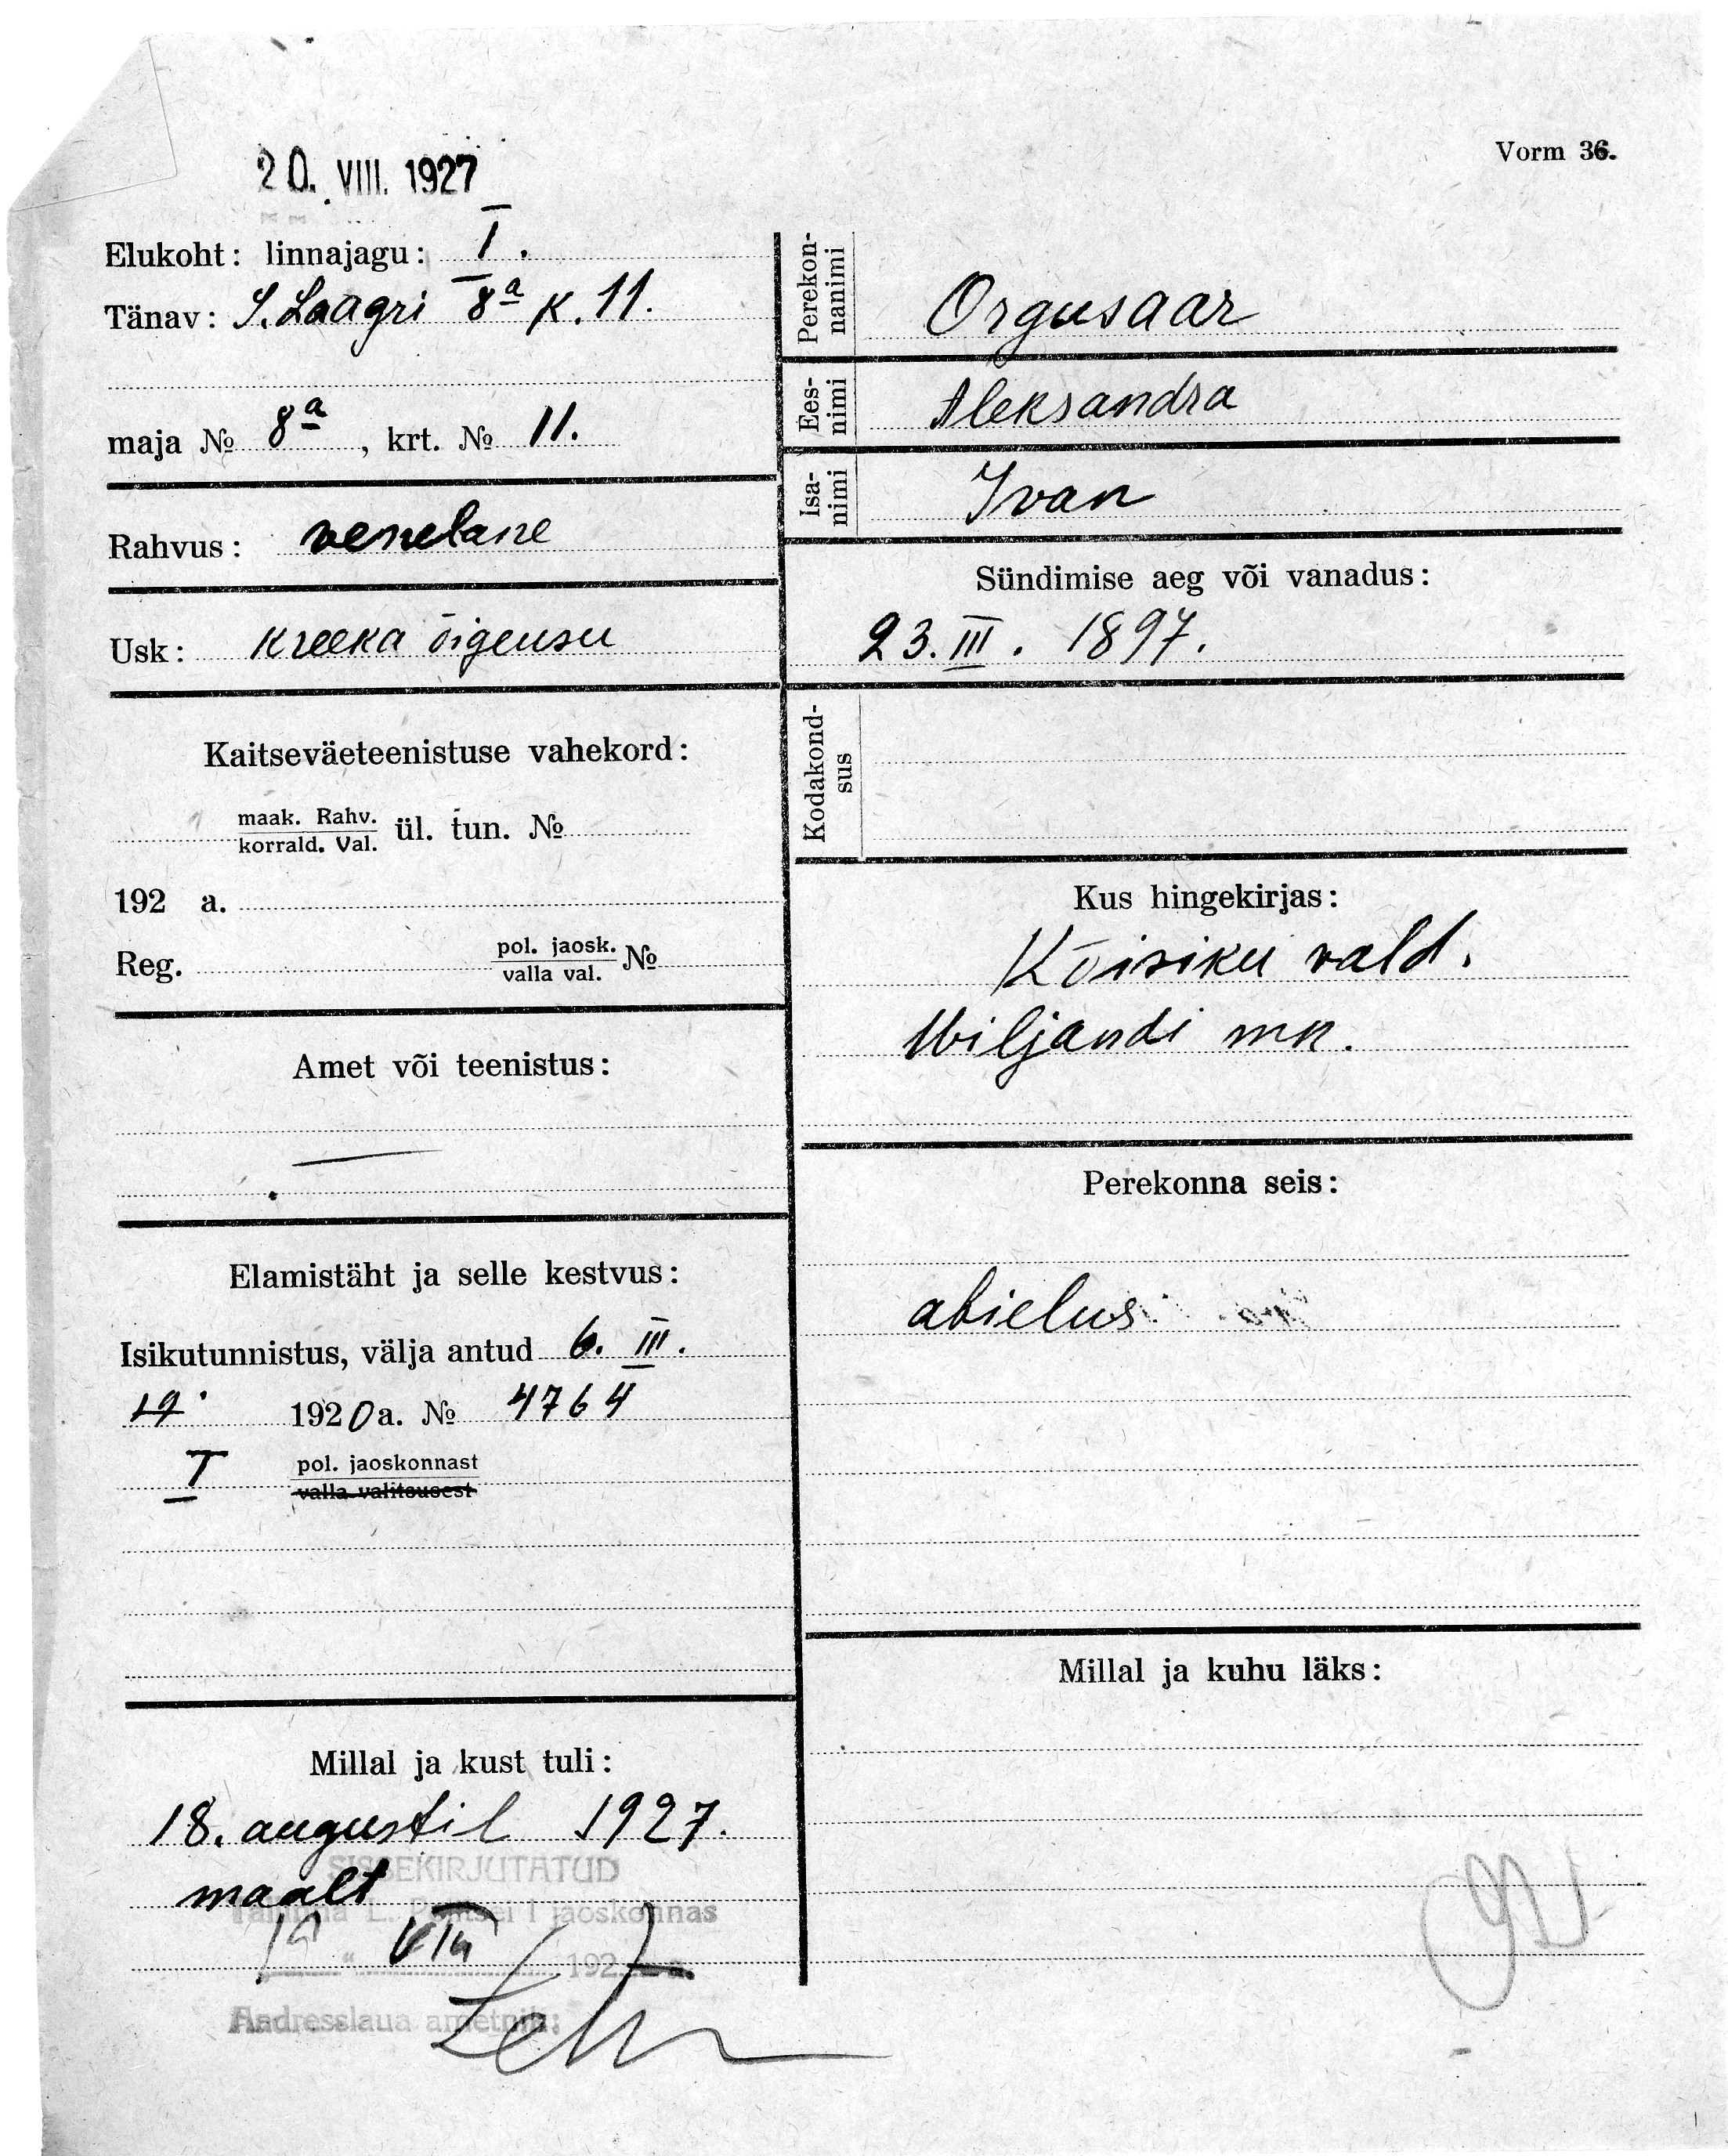 20. VIII. 1927
Vorm 36.
Elukoht: linnajagu: I.
Tänav: S. Laagri 8ª k. 11.
maja № 8ª, krt. № 11.
Rahvus: venelane
Usk: kreeka õigeusu
Kaitseväeteenistuse vahekord:
maak. Rahv.
korrald. Val. ül. tun. №
192 a.
Reg. pol. jaosk.
valla val. №
Amet või teenistus:
Elamistäht ja selle kestvus:
Isikutunnistus, välja antud 6. III.
19 1920 a. № 4764
I pol. jaoskonnast
valla valitsusest
Millal ja kust tuli:
18. augustil 1927.
maalt
SISSEKIRJUTATUD
Tallinna L. Politsei I jaoskonnas
VIII 192
Aadresslaua ametnik:
Perekon-
nanimi
Orgusaar
Ees-
nimi
Aleksandra
Isa-
nimi
Ivan
Sündimise aeg või vanadus:
23. III. 1897.
Kodakond-
sus
Kus hingekirjas:
Kõisiku vald.
Wiljandi mk.
Perekonna seis:
abielus
Millal ja kuhu läks: